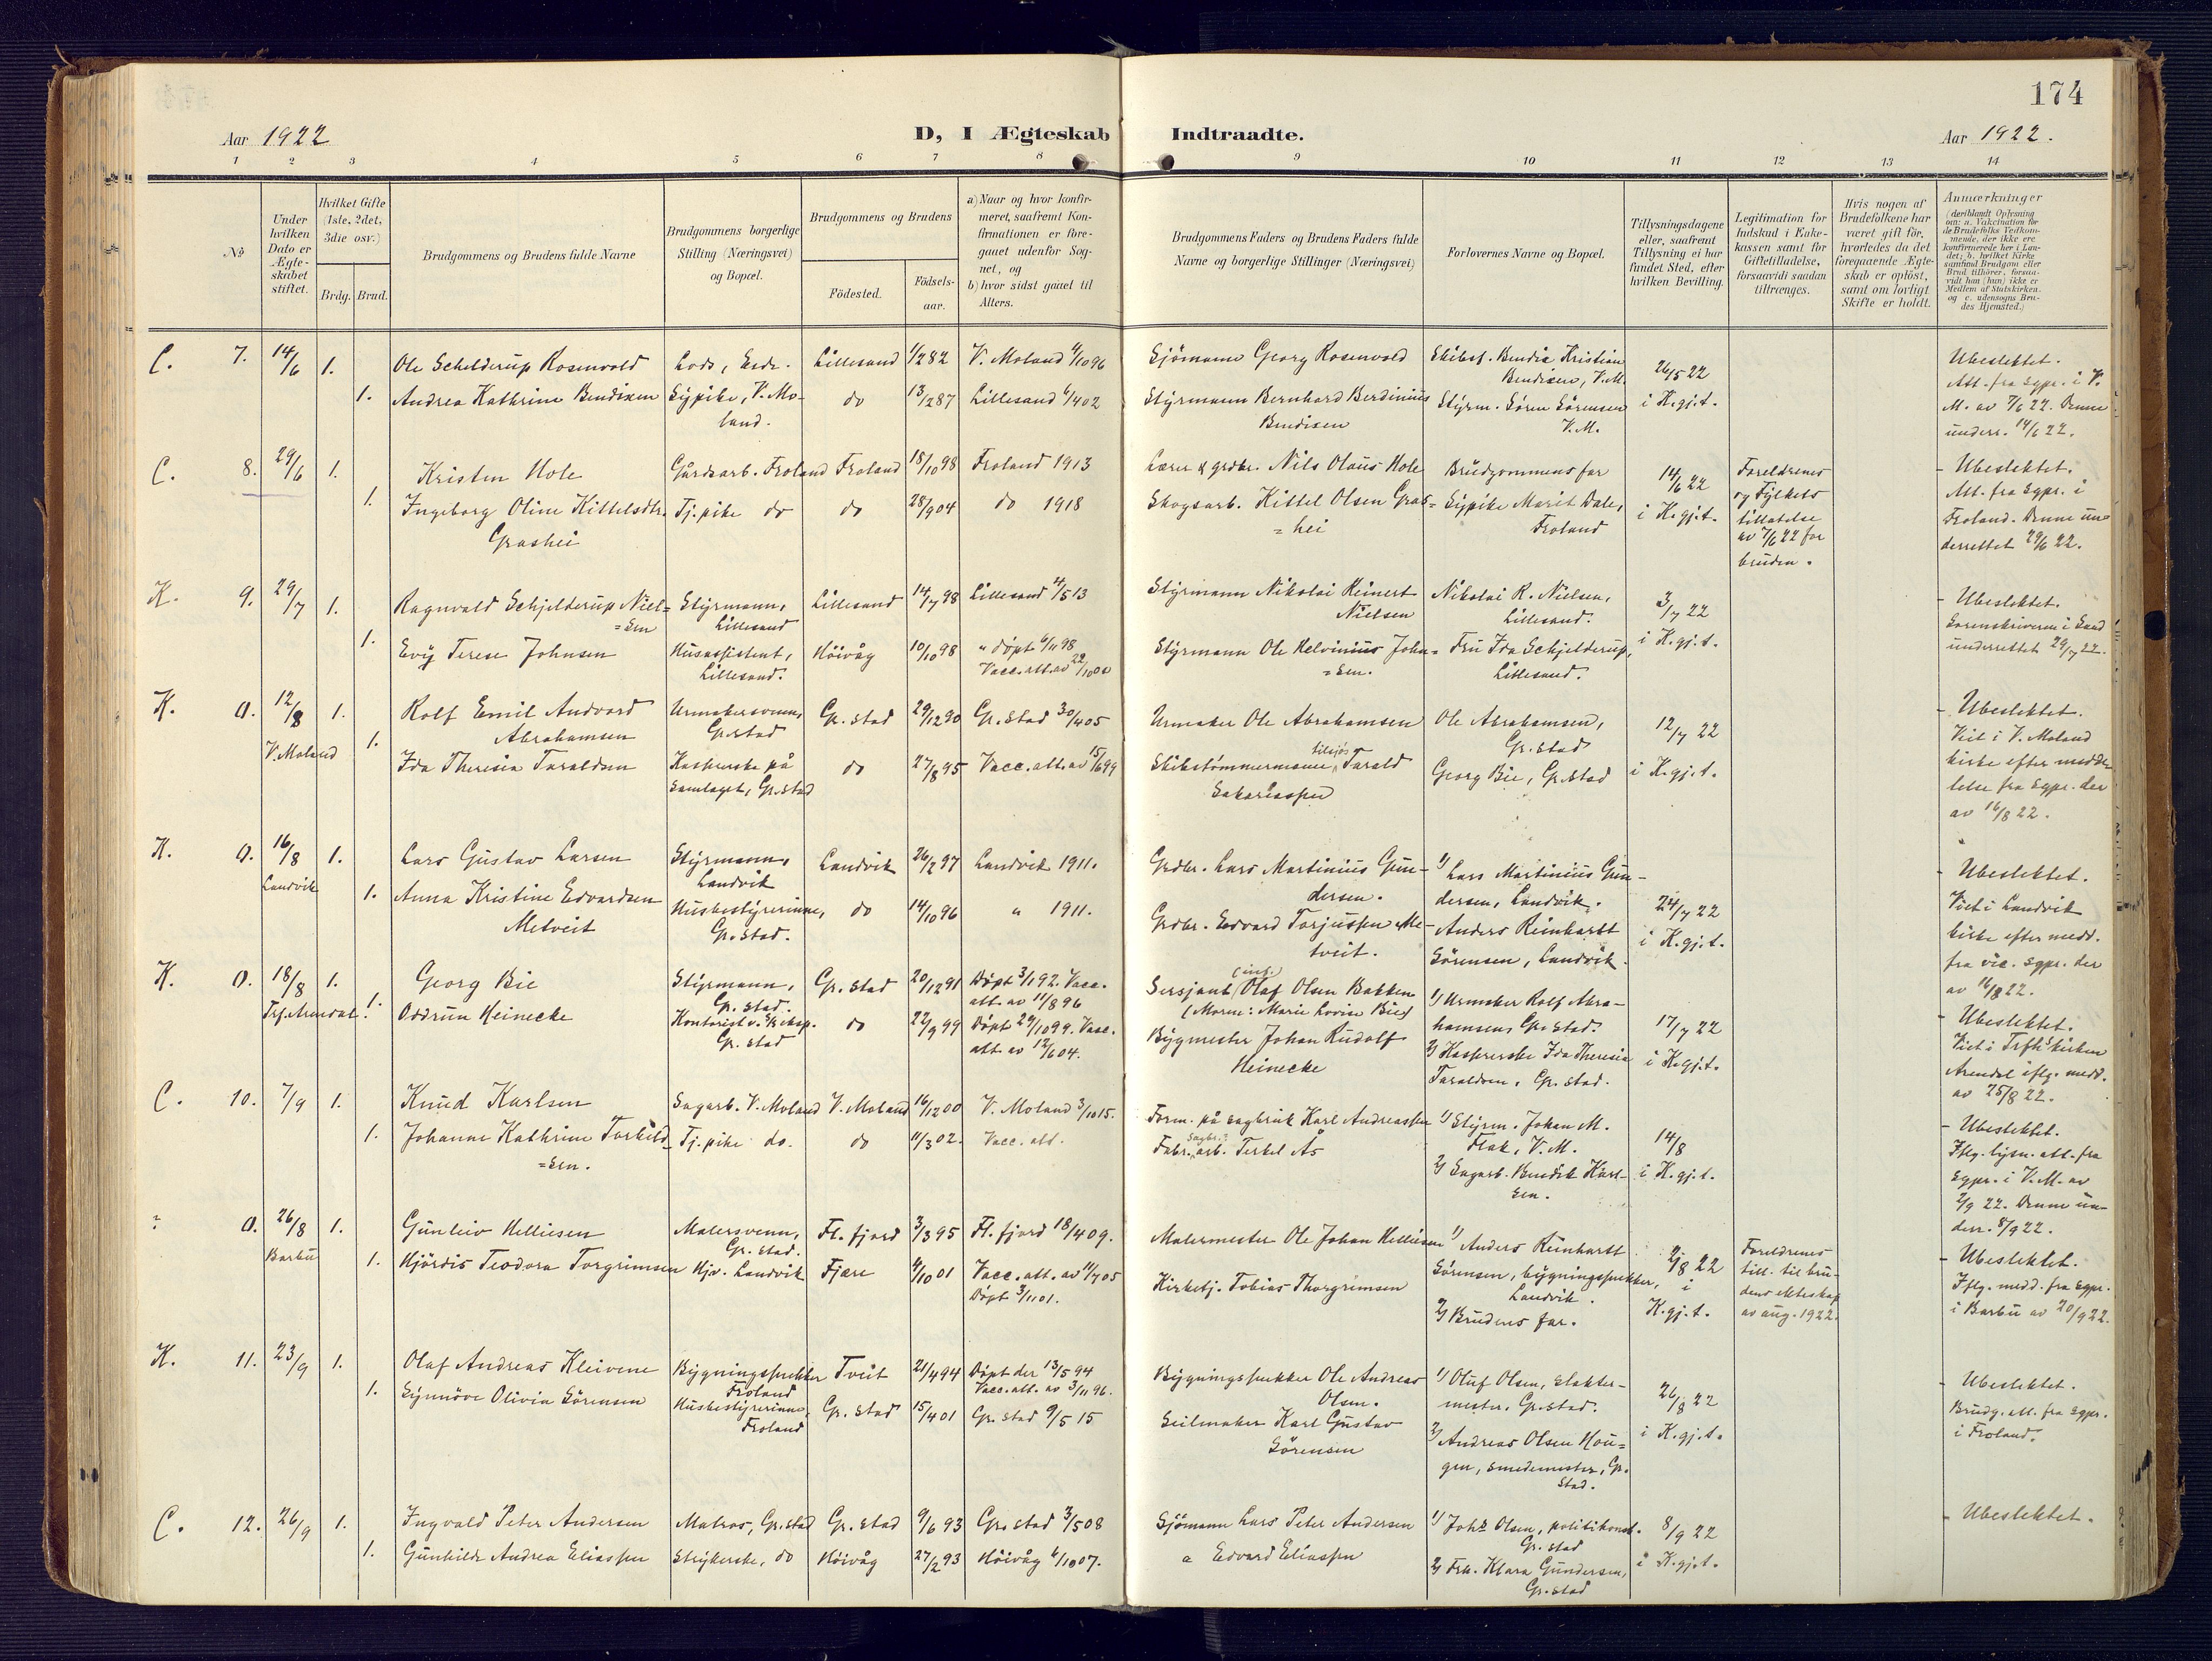 174
Aar 1922
D, I Ægteskab Indtraadte.
Aar 1922.
1 2 3 4 5 6 7 8 9 10 11 12 13 14
No
Under hvilken Dato er Ægteskabet stiftet.
Hvilket Gifte (1ste, 2det, 3die osv.)
Brdg. Brud.
Brudgommens og Brudens fulde Navne
Brudgommens borgerlige Stilling (Næringsvei) og Bopæl.
Brudgommens og Brudens
Födested.
Födsels-aar.
a) Naar og hvor konfirmeret, saafremt Konfirmationen er foregaaet udenfor Sognet, og
b) hvor sidst gaaet til Alters.
Brudgommens Faders og Brudens Faders fulde Navne og borgerlige Stillinger (Næringsvei)
Forlovernes Navne og Bopæl.
Tillysningsdagene eller, saafremt Tillysning ei har fundet Sted, efter hvilken Bevilling.
Legitimation for Indskud i Enkekassen samt for Giftetilladelse, forsaavidt saadan tiltrænges.
Hvis nogen af Brudefolkene har været gift før, hvorledes da det foregaaende Ægteskab er opløst, samt om lovligt Skifte er holdt.
Anmærkninger
C. 7. 14/6 1. Ole Schelderup Rosenvold Lods, Lillesand 1/2 82 V. Moland 4/10 96 Sjömann Georg Rosenvold Skibsf. Bendix Kristian
Bendixen, V.M. 26/5 22 Ubeslektet.
1. Andrea Kathrine Bendixen Sypike, V. Mo- do 13/2 87 Lillesand 6/4 02 Styrmann Bernhard Berdinius Styrm. Sören Sörensen i K.gj.t. Att. fra sgpr. i V.
land. Bendixen V.M. M. av 7/6 22. Denne
underr. 14/6 22.
C. 8. 29/6 1. Kristen Hole Gårdsarb. Froland Froland 18/10 98 Froland 1913 Lærer & grdbr. Nils Olaus Hole Brudgommens far 14/6 22 Foreldrenes - Ubeslektet.
1. Ingeborg Oline Kittelsdtr. Tj.pike do do 28/9 04 do 1918 Skogsarb. Kittel Olsen Gras- Sypike Marit Dale, i K.gj.t. og Fylkets Att. fra sgpr. i
Grashei =hei Froland tillatelse Froland. Denne un-
av 7/6 22 for derrettet 29/6 22.
bruden.
K. 9. 29/7 1. Ragnvald Schjelderup Niel- Styrmann, Lillesand 14/7 98 Lillesand 4/5 13 Styrmann Nikolai Reinert Nikolai R. Nielsen, 3/7 22 - Ubeslektet.
=sen Lillesand Nielsen Lillesand. Sorenskriveren i Sand
1. Evy Terese Johnsen Husassistent, Höivåg 10/10 98 " döpt 6/11 98 Styrmann Ole Helvinius John- Fru Ida Schjelderup, i K.gj.t. underrettet 29/7 22.
Lillesand. Vacc.att. av =sen. Lillesand.
K. 0. 12/8 1. Rolf Emil Andvord Urmakersvenn, Gr.stad 29/12 90 Gr.stad 30/4 05 Urmaker Ole Abrahamsen Ole Abrahamsen, 12/7 22 - Ubeslektet.
V. Moland Abrahamsen Gr.stad Gr.stad Viet i V. Moland
1. Ida Theresia Taraldsen Kassererske på do 27/8 95 Vacc.att. av 15/6 99 Skibstömmermann tilsjös Tarald Georg Bie, Gr.stad i K.gj.t. kirke efter medde-
Samlaget, Gr.stad Sakariassen lelse fra sgpr. der
av 16/8 22.
K. 0. 16/8 1. Lars Gustav Larsen Styrmann, Landvik 26/2 97 Landvik 1911. Grdbr. Lars Martinius Gun- 1) Lars Martinius Gun- - Ubeslektet.
Landvik Landvik dersen. dersen, Landvik. 24/7 22 Viet i Landvik
1. Anna Kristine Edvardsen Husbestyrerinne, do 14/10 96 " 1911. Grdbr. Edvard Torjussen Me- Anders Reinhardt i K.gj.t. kirke efter medd.
Metveit Gr.stad. tveit. Sörensen, Landvik. fra vic. sgpr. der
av 16/8 22.
K. 0. 18/8 1. Georg Bie Styrmann, Gr.stad 20/12 91 Döpt 3/1 92. Vacc. Sersjant (inf.) Olaf Olsen Bakken 1) Urmaker Rolf Abra- - Ubeslektet.
Gr.stad. att. av 11/8 96 (Moren: Marie Lovise Bie) hamsen, Gr.stad. 17/7 22 Viet i Trfhs kirken
Trf. Arendal 1. Oddrun Heinecke Kontorist v. Gr.stad do 22/9 99 Döpt 29/10 99. Vacc. Bygmester Johan Rudolf 2) Kassererske Ida Theresia i K.gj.t. Arendal iflg. medd.
att. av 12/6 04. Heinecke Taraldsen, Gr.stad. av 25/8 22.
C. 10. 7/9 1. Knud Karlsen Sagarb. V. Moland V. Moland 16/12 00 V. Moland 3/10 15. Form. på sagbruk Karl Andreassen 1) Styrm. Johan M. 14/8 - Ubeslektet.
1. Johanne Kathrine Torkild- Tj.pike do. do 11/3 02. Vacc. att. Fabr. arb. Terkel Ås Flak, V.M. Iflg. lysn. att. fra
=sen. 2) Sagarb. Bendik Karl- i K.gj.t. sgpr. i V.M. av
sen. 2/9 22. Denne un-
derr. 8/9 22.
? 0. 26/8 1. Gunleiv Helliesen Malersvenn, Fl.fjord 3/3 95 Fl.fjord 18/4 09. Malermester Ole Johan Helliesen 1) Anders Reinhardt 2/8 22 Foreldrenes - Ubeslektet.
Barbu Gr.stad. Sörensen, bygningssnekker, i till. til bru- Iflg. medd. fra sgpr.
1. Hjördis Teodora Torgrimsen Hjv. Landvik Fjære 4/10 01 Vacc. att. av 11/7 05 Kirketj. Tobias Thorgrimsen Landvik. dens ekteskap i Barbu av 20/9 22.
Döpt 3/11 01. 2) Brudens far. K.gj.t. av aug. 1922.
K. 11. 23/9 1. Olaf Andreas Kleivene Bygningssnekker Tveit 21/4 94 Döpt der 13/5 94 Bygningssnekker Ole Andreas 1) Oluf Olsen, slakter- 26/8 22 - Ubeslektet.
Froland Vacc.att. av 3/11 96. Olsen. mester, Gr.stad. Brudg. att. fra sgpr.
1. Synnöve Olivia Sörensen Husbestyrerinne, Gr.stad 15/4 01 Gr.stad 9/5 15 Seilmaker Karl Gustav 2) Andreas Olsen Hou- i K.gj.t. i Froland.
Froland Sörensen gen, smedemester, Gr.
stad.
C. 12. 26/9 1. Ingvald Peter Andersen Matros, Gr.stad Gr.stad 9/6 93 Gr.stad 3/5 08 Sjömann Lars Peter Andersen 1) Johs Olsen, politikonst. 8/9 22 - Ubeslektet.
Gr.stad
1. Gunhilde Andrea Eliassen Strykerske, do Höivåg 27/2 93 Höivåg 6/10 07. Edvard Eliassen 2) Frk. Klara Gundersen, i K.gj.t.
Gr.stad